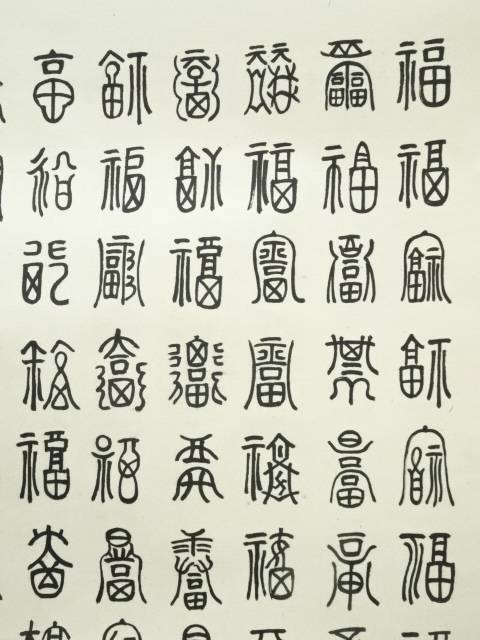 福福福福福福
福福福福福福
福福福福福福
福福福福福福
福福福福福福
福福福福福福